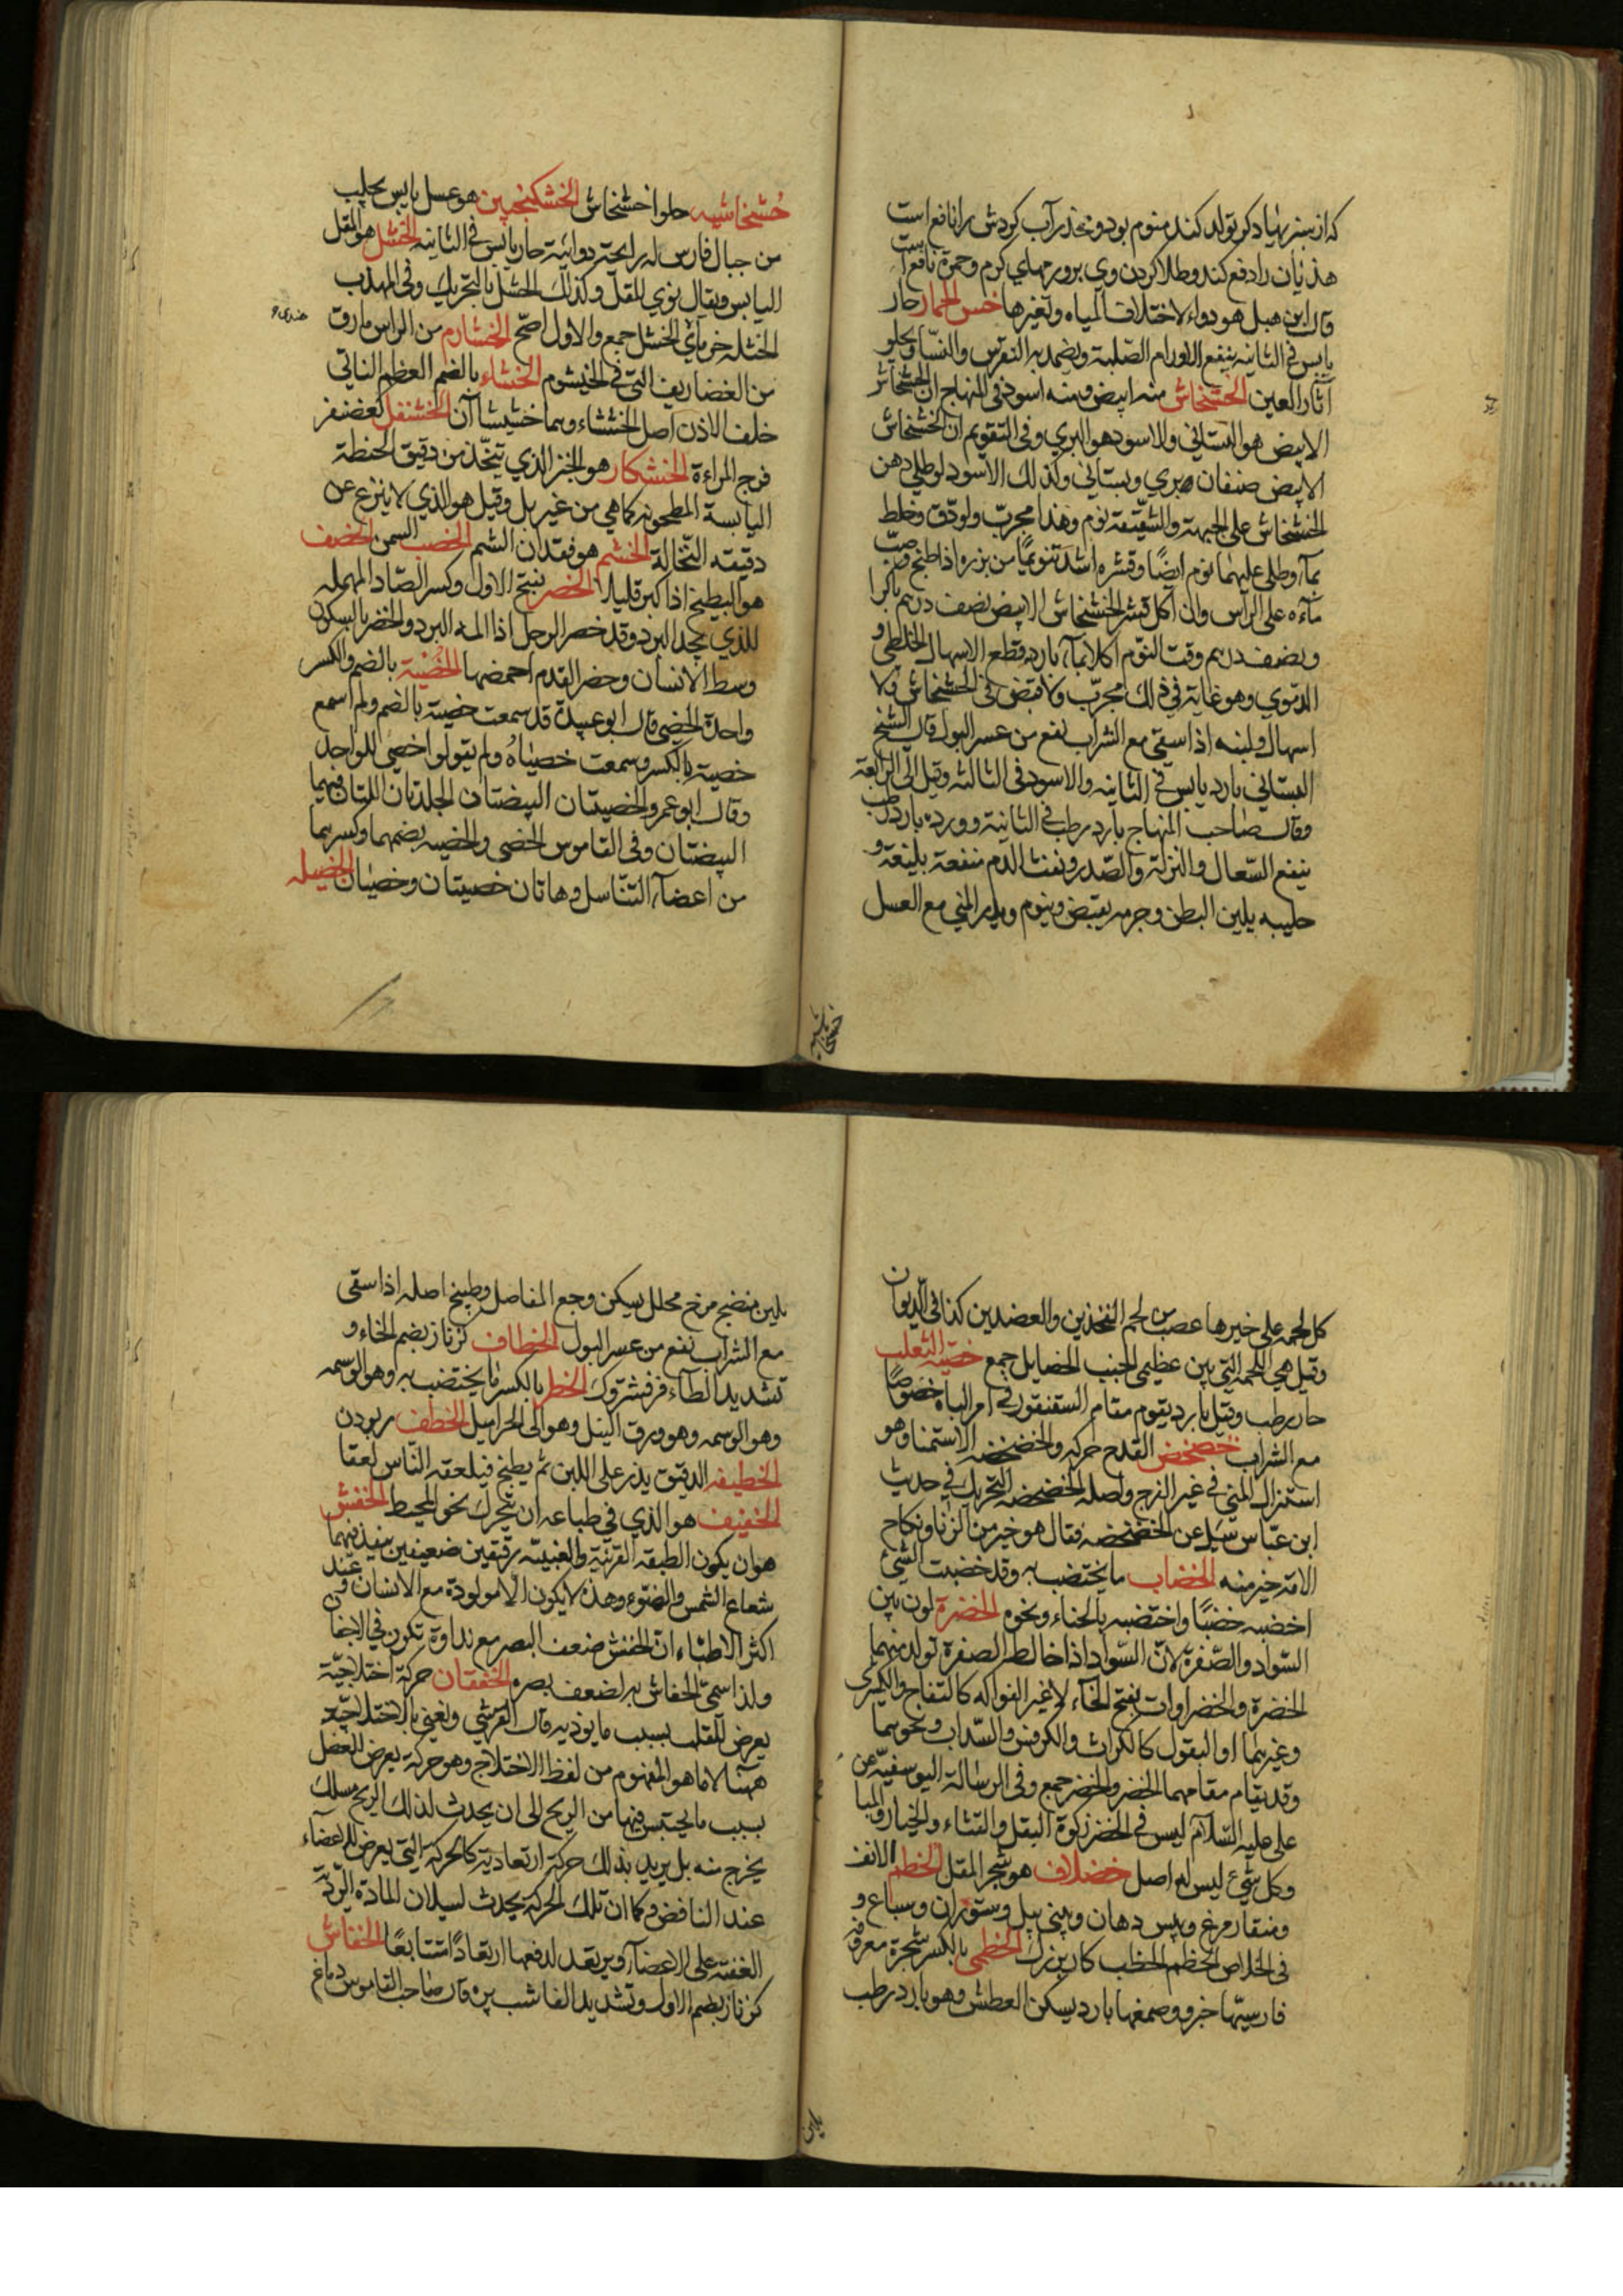 که از سبزیهاء دکر تولد کند منوم بود و مخدر آب کردش را نافع است
هذیان را دفع کند و طلا کردن وی بر ورمهای کرم و حمرة نافع است
قال ابن هبل هو دواء لاختلاف المیاه و تغیرها خس الحمار حار
یابس فی الثانیه ینفع الاورام الصّلبة و یضمد به النقرس والنسّا و یجلو
آثار العین الخشخاش منه ابیض و منه اسود فی المنهاج ان الخشخاش
الابیض هو البستانی والاسود هو البری و فی التقویم ان الخشخاش
الابیض صنفان بری و بستانی وکذلک الاسود لو طلی دهن
الخشخاش علی الجبهة والشقیقة نوم و هذا مجربّ ولو دقّ و خلط
بمآء و طلی علیهما نوم ایضًا و قشره اشد تنویمًا من بزره اذا طبخ و صبّ
مآءه علی الرأس وان اکل قشر الخشخاش الابیض نصف درهم باکرا
و نصف درهم وقت النوم اکلا بمآء بارد قطع الاسهال الخلطی و
الدموی و هو غایة فی ذلک مجربّ ولا قبض فی الخشخاش ولا
اسهال ولبنه اذا سقی مع الشراب نفع من عسر البول قال الشیخ
البستانی بارد یابس فی الثانیه والاسود فی الثالثه وقیل الی الرابعة
وقال صاحب المنهاج بارد رطب فی الثانیة و ورده بارد رطب
ینفع السّعال والنزلة والصّدر ونفث الدم منفعة بلیغة و
حلیبه یلین البطن و جرمه یقبض و ینوم و یدر المنی مع العسل
خشخاشیه
خشخاشیه حلوا خشخاش الخشکنجبین هو عسل یابس یجلب
من جبال فارس له رایحة دوائیة حار یابس فی الثانیه الخشل هو المقل
الیابس ویقال نوی المقل وکذلک الخشل بالتحریک وفی المهذب
الخشله خرمای الخشل جمع والاول اصحّ الخشارم من الراس مارق
من الغضاریف التی فی الخیشوم الخشاء بالضم العظم الناتی
خلف الاذن اصل الخششاء وهما خشیشا آن الخشنفل کغضنفر
فرج المراءة الخشکار هو الخبز الذی یتخّذ من دقیق الحنطة
الیابسة المطحونه کماهی من غیر بل وقیل هو الذی لاینزع عن
دقیقه النّخالة الخشم هو فقدان الشم الخصب السمن الخضف
هو البطیخ اذا کبر قلیلا الخصر بفتح الاول وکسر الصّاد المهمله
للذی یجد البرد وقد خصر الرجل اذا المه البرد والخصر بالسکون
وسط الانسان وخصر القدم اخمصها الخُصیة بالضم والکسر
واحدة الخصی قال ابو عبیدة قد سمعت خصیة بالضم ولم اسمع
خصیة بالکسر وسمعت خصیاهُ ولم یقولوا خصی للواحد
وقال ابو عمرو الخصیتان البیضتان الجلدتان اللتان فیهما
البیضتان وفی القاموس الخصی والخصیه بضمهما وکسرهما
من اعضآء التنّاسل وهاتان خصیتان وخصیان الخصیله
کل لحمه علی خیرها عصب من لحم الفخذین والعضدین کذا فی الدّیوان
وقیل هی اللحمة التی بین عظیمی الجنب الخصایل جمع خصیة الثعلب
حار رطب وقیل بارد یقوم مقام السقنقور فی امر الباه خصوصًا
مع الشراب خضخض القدح حرکه والخضخضه الاستمنا وهو
استنزال المنی فی غیر الفرج واصله الخضخضه التحریک فی حدیث
ابن عبّاس سیل عن الخضخضه فقال هو خیر من الزنا ونکاح
الامة خیر منه الخضاب ما یختضب به وقد خضبت الشئ
اخضبه خضبًا واختضبه بالحناء ونحوه الخضرة لون بین
السّواد والصّفرة لانّ السّواد اذا خالط الصفرة تولد منهما
الخضرة والخضراوات بفتح الخآء لاغیر الفواکه کالتفاح والکمثری
وغیرهما او البقول کالکراث والکرفس والسّداب ونحوهما
وقد یقام مقامهما الخضر والخضر جمع وفی الرسالة الیوسفیّه عن
علی علیه السّلام لیس فی الخضر زکوة البقل والقثاء والخیار
وکل شئ لیس له اصل خضلاف هو شجر المقل الخطم الانف
ومنقار مرغ وپیس دهان وبینی پیل وستوران وسباع و
فی الخلاص الخطم الخطب کار بزرگ الخطمی بالکسر شجرة معروفة
فارسیّها خیرو وصمغها بارد یسکن العطش وهو بارد رطب
یلین
یلین منضج مرخ محلل یسکن وجع المفاصل وطبیخ اصله اذا سقی
مع الشراب نفع من عسر البول الخطاف کزنار بضم الخاء و
تشدید الطآء فرفشتروک الخطر بالکسر ما یختضب به وهو الوسمه
وهو الوسمه وهو ورق النیل وهو الی الحرامیل الخطف ربودن
الخطیفه الدقیق یذر علی اللبن ثم یطبخ فیلعقه النّاس لعقا
الخفیف هو الذی فی طباعه ان یتحرک نحو المحیط الخفش
هو ان یکون الطبقة القرنیة والعنبیّه رقیقین ضعیفین ینفذ فیهما
شعاع الشمس والضوّء وهذا لایکون الا مولودة مع الانسان وعند
اکثر الاطبّاء انّ الخفش ضعف البصر مع نداوة تکون فی الاجفان
ولذا سمیّ الخفاش به لضعف بصره الخفقان حرکة اختلاجیّة
یعرض للقلب بسبب ما یوذیه قال القرشی ونعنی بالاختلاجیّه
ههنا لاما هو المفهوم من لفظ الاختلاج وهو حرکة یعرض للعضل
بسبب ما یحتبس فیها من الریح الی ان یحدث لذلک الریح مسلک
یخرج منه بل یرید بذلک حرکة ارتعادیة کالحرکة التی یعرض للاعضآء
عند النافض فکما ان تلک الحرکة یحدث لسیلان المادة الردیّة
العفنة علی الاعضآء ویرتعد لدفعها ارتعادًا متتابعًا الخفاش
کزنار بضم الاول وتشدید الفا شب پره قال صاحب القاموس دماغ